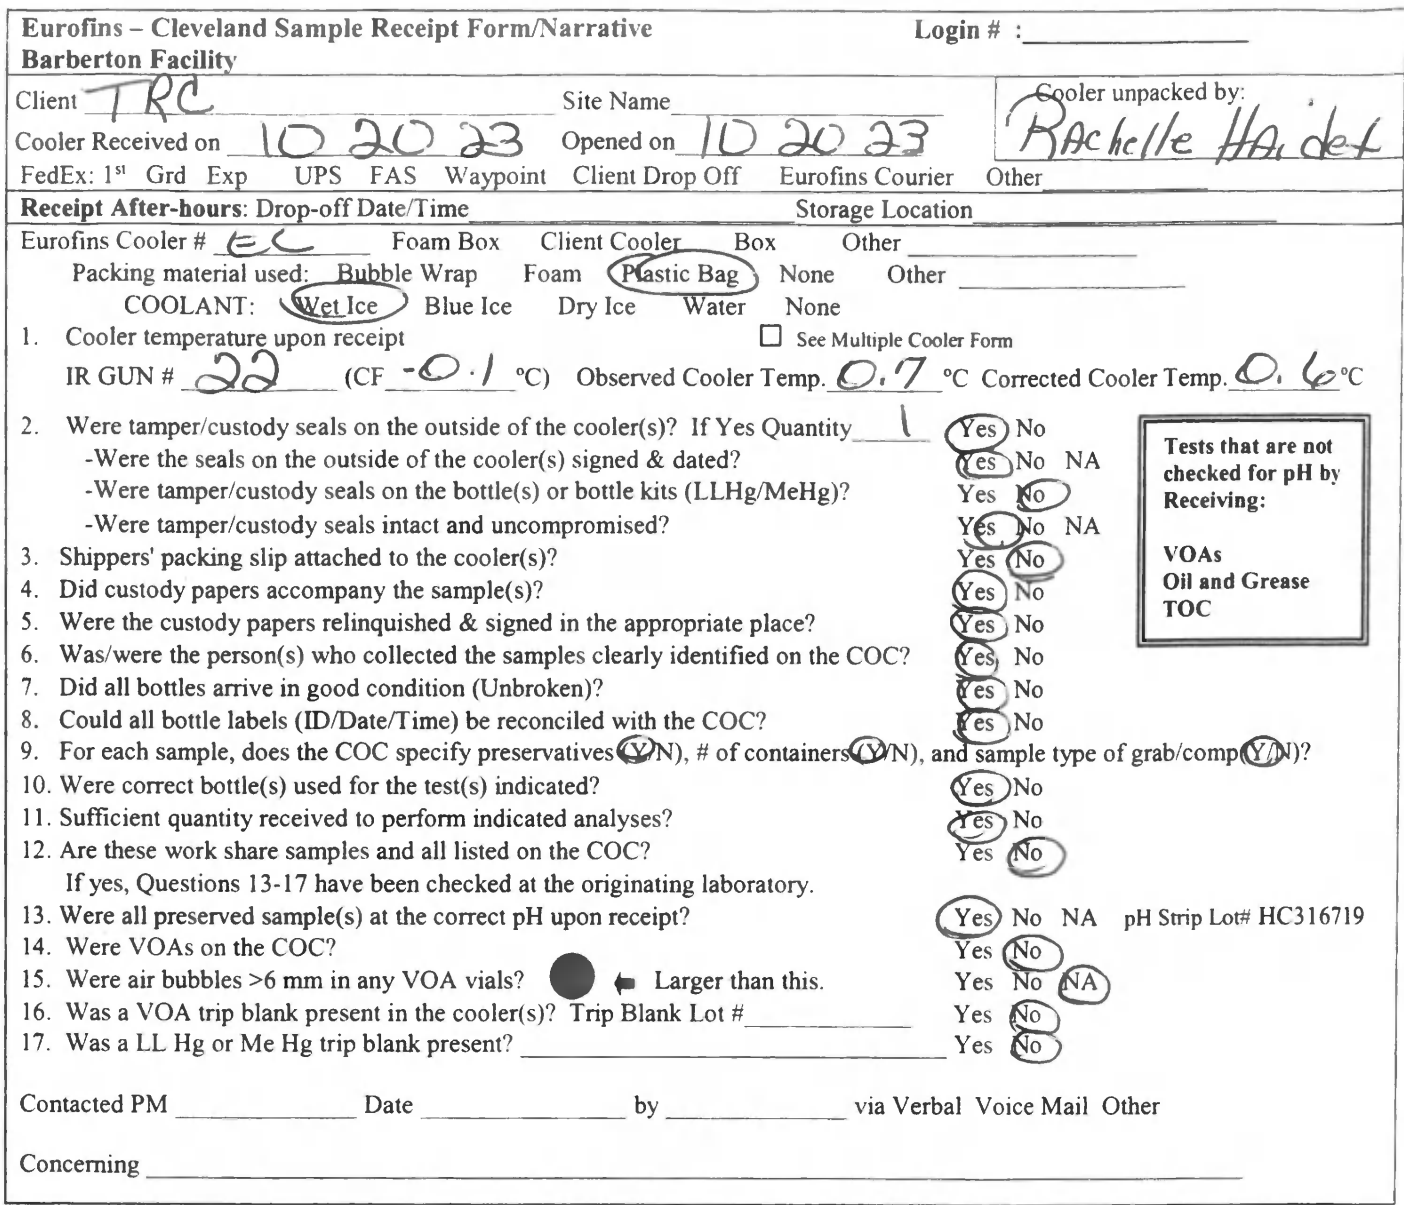 Eurofins – Cleveland Sample Receipt Form/Narrative Login # :
Barberton Facility
Client TRC Site Name Cooler unpacked by:
Cooler Received on 10 20 23 Opened on 10 20 23 RAchelle HAidet
FedEx: 1st Grd Exp UPS FAS Waypoint Client Drop Off Eurofins Courier Other
Receipt After-hours: Drop-off Date/Time Storage Location
Eurofins Cooler # EC Foam Box Client Cooler Box Other
Packing material used: Bubble Wrap Foam Plastic Bag None Other
COOLANT: Wet Ice Blue Ice Dry Ice Water None
1. Cooler temperature upon receipt ☐ See Multiple Cooler Form
IR GUN # 22 (CF -0.1 °C) Observed Cooler Temp. 0.7 °C Corrected Cooler Temp. 0.6 °C
2. Were tamper/custody seals on the outside of the cooler(s)? If Yes Quantity 1 Yes No
-Were the seals on the outside of the cooler(s) signed & dated? Yes No NA
-Were tamper/custody seals on the bottle(s) or bottle kits (LLHg/MeHg)? Yes No
-Were tamper/custody seals intact and uncompromised? Yes No NA
3. Shippers' packing slip attached to the cooler(s)? Yes No
4. Did custody papers accompany the sample(s)? Yes No
5. Were the custody papers relinquished & signed in the appropriate place? Yes No
6. Was/were the person(s) who collected the samples clearly identified on the COC? Yes No
7. Did all bottles arrive in good condition (Unbroken)? Yes No
8. Could all bottle labels (ID/Date/Time) be reconciled with the COC? Yes No
Tests that are not
checked for pH by
Receiving:
VOAs
Oil and Grease
TOC
9. For each sample, does the COC specify preservatives (Y/N), # of containers (Y/N), and sample type of grab/comp(Y/N)?
10. Were correct bottle(s) used for the test(s) indicated? Yes No
11. Sufficient quantity received to perform indicated analyses? Yes No
12. Are these work share samples and all listed on the COC? Yes No
If yes, Questions 13-17 have been checked at the originating laboratory.
13. Were all preserved sample(s) at the correct pH upon receipt? Yes No NA pH Strip Lot# HC316719
14. Were VOAs on the COC? Yes No
15. Were air bubbles >6 mm in any VOA vials? Larger than this. Yes No NA
16. Was a VOA trip blank present in the cooler(s)? Trip Blank Lot # Yes No
17. Was a LL Hg or Me Hg trip blank present? Yes No
Contacted PM Date by via Verbal Voice Mail Other
Concerning